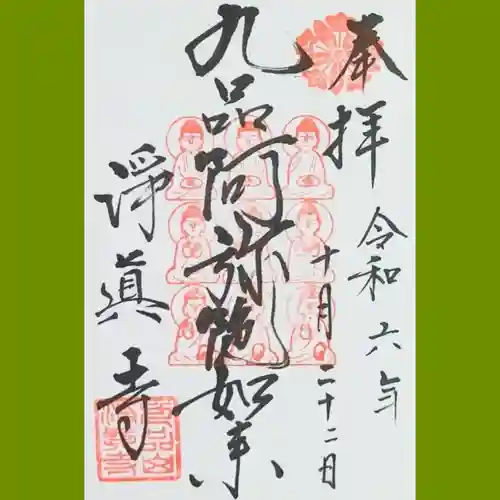 奉拝
令和六年
十月二十二日
九品阿弥陀如来
淨眞寺